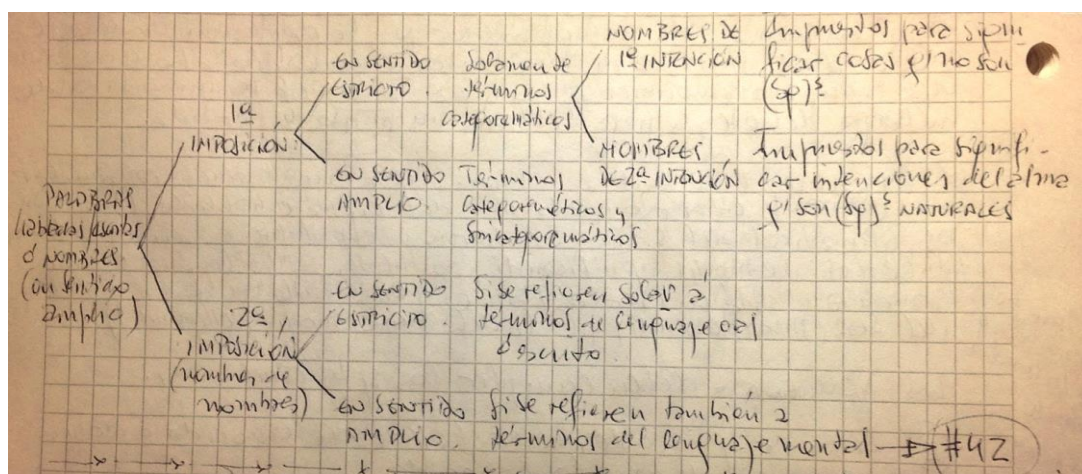 PALABRAS
habladas/escritas
ó NOMBRES
(en sentido
amplio)
1ª
IMPOSICIÓN
EN SENTIDO
ESTRICTO.
Solamente
términos
categoremáticos
NOMBRES DE
1ª INTENCIÓN
Impuestos para signi
ficar cosas q' no son
(Sp)ˢ
NOMBRES
DE 2ª INTENCIÓN
Impuestos para signifi-
car intenciones del alma
q' son (Sp)ˢ NATURALES
EN SENTIDO
AMPLIO
Términos
categoremáticos y
sincategoremáticos
2ª
IMPOSICIÓN
(nombres de
nombres)
EN SENTIDO
ESTRICTO.
Si se refieren solo a
términos de lenguaje oral
ó escrito.
EN SENTIDO
AMPLIO.
Si se refieren también a
términos del lenguaje mental → #42